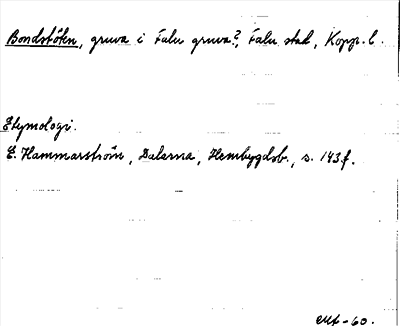 Bondstöten, gruva i Falu gruva?, Falu stad, Kopp. l.
Etymologi.
E. Hammarström, Dalarna, Hembygdsb., s. 143 f.
-60.